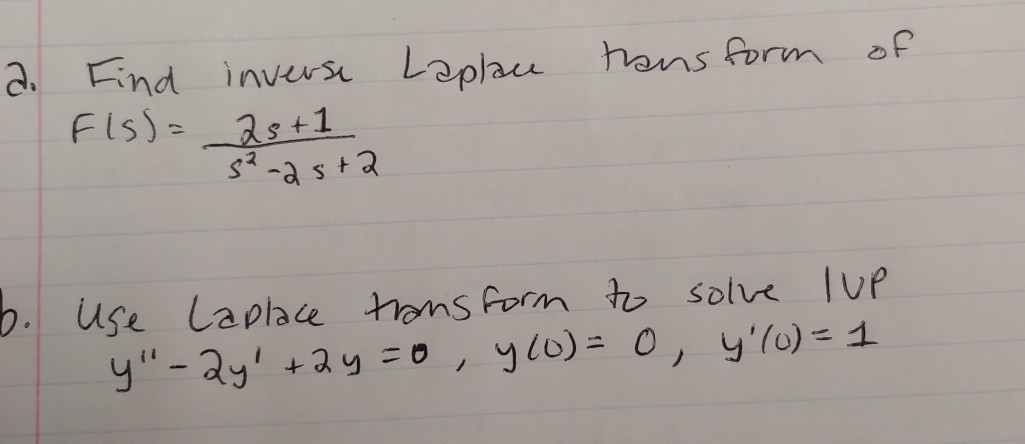 a. Find inverse Laplace transform of
F(s) = 2s+1
s² -2s+2
b. Use Laplace transform to solve IVP
y'' - 2y' + 2y = 0, y(0) = 0, y'(0) = 1